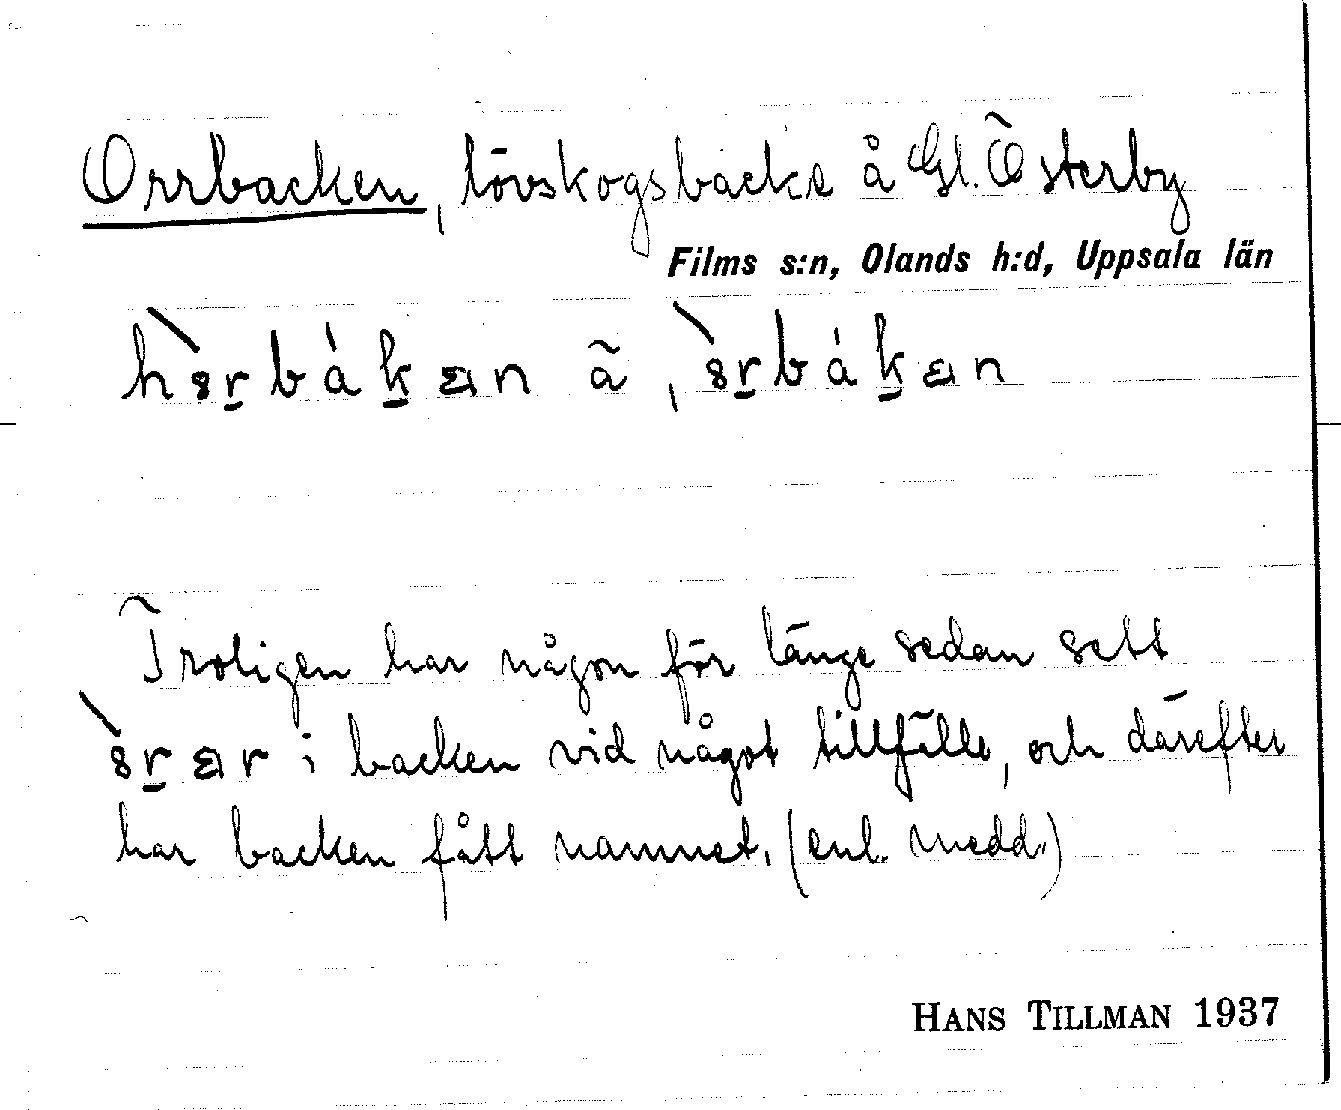 Orrbacken, lövskogsbacke å Gl. Österby
Films s:n, Olands h:d, Uppsala län
h̀ɞr̠bák̠ən ã, ɞ̀r̠bák̠ən
Troligen har någon för länge sedan sett
ɞ̀r̠ər i backen vid något tillfälle, och därefter
har backen fått namnet. (enl. medd.)
HANS TILLMAN 1937